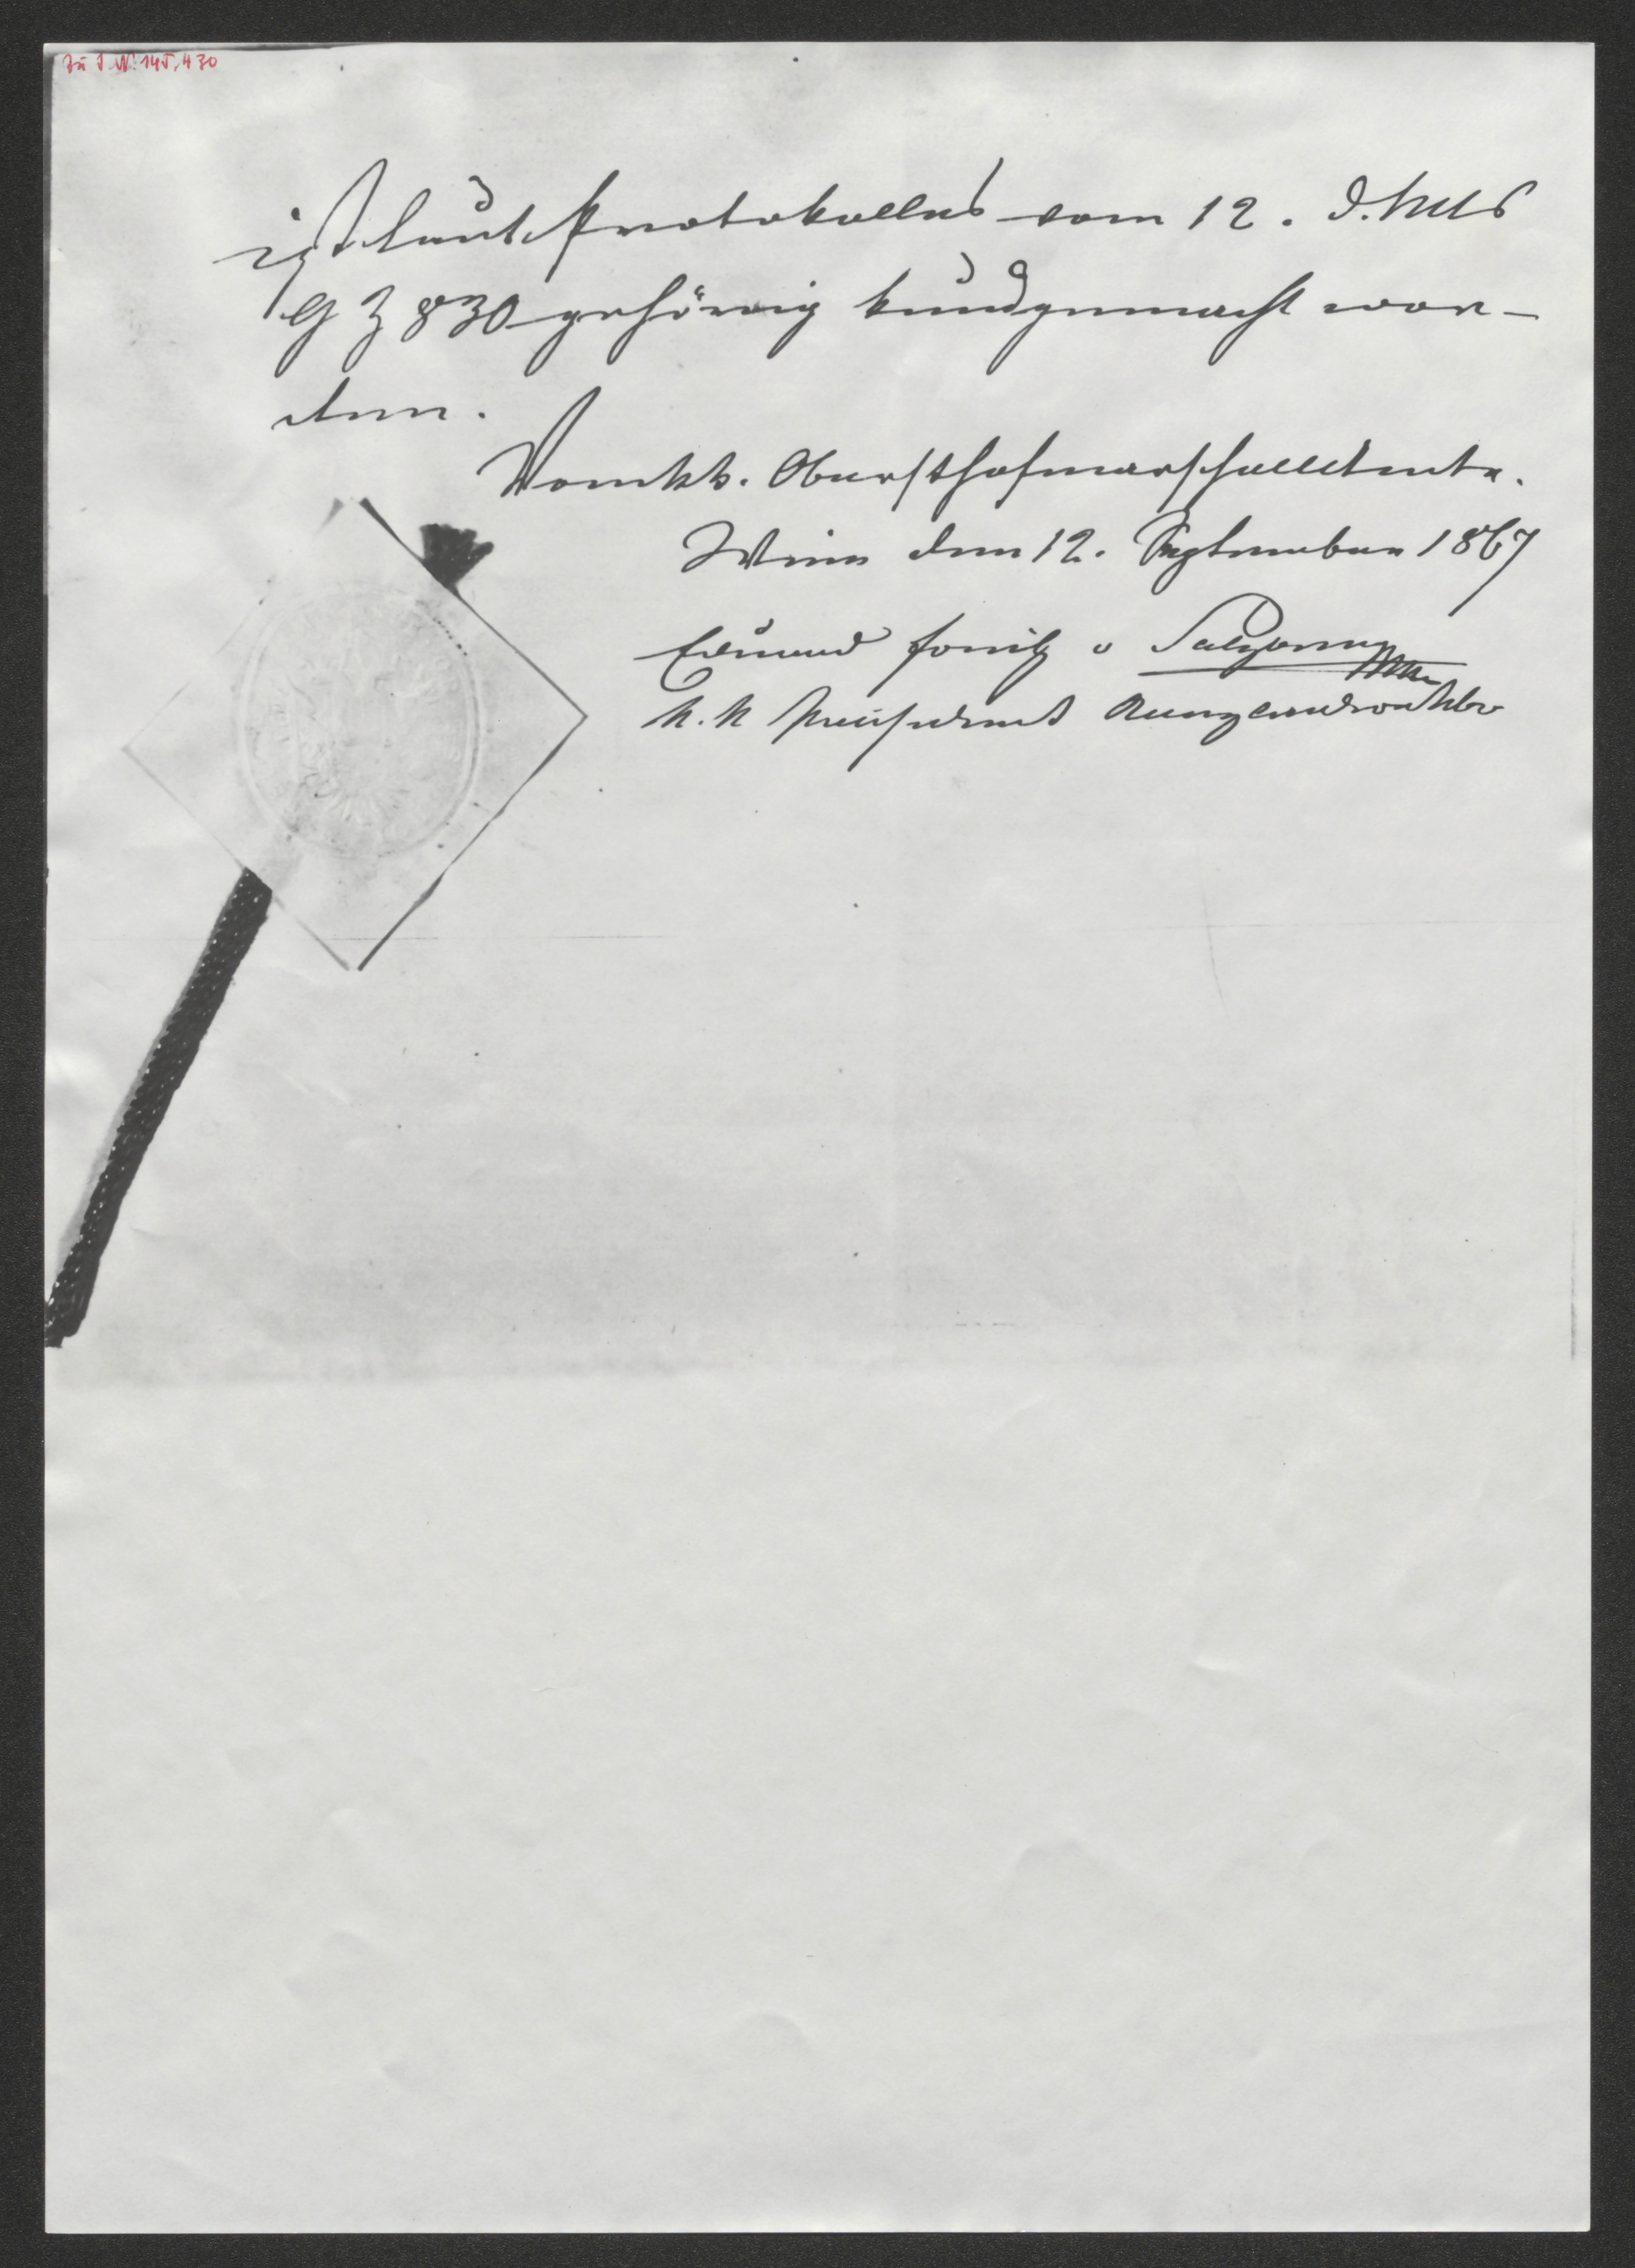 Zu I.N. 145.430
ist laut Protokolles vom 12. d. Mts
G Z 830 gehörig kundgemacht wor-
den.
Vom kk. Obersthofmarschallamte.
Wien den 12. September 1867
Edmund
k. k.